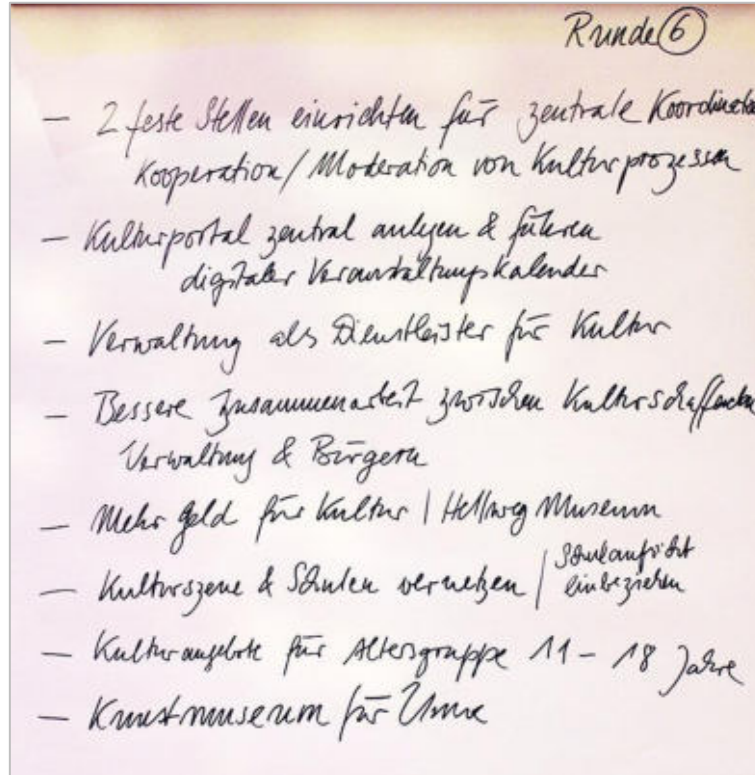 Runde 6
– 2 feste Stellen einrichten für zentrale
Kooperation / Moderation von Kulturprozessen
– Kulturportal zentral anlegen & führen
digitaler Veranstaltungskalender
– Verwaltung als Dienstleister für Kultur
– Bessere Zusammenarbeit zwischen Kulturschaffenden
Verwaltung & Bürgern
– Mehr Geld für Kultur | Hellweg Museum
– Kulturszene & Schulen vernetzen / Schulaufsicht
einbeziehen
– Kulturangebote für Altersgruppe 11 – 18 Jahre
– Kunstmuseum für Unna